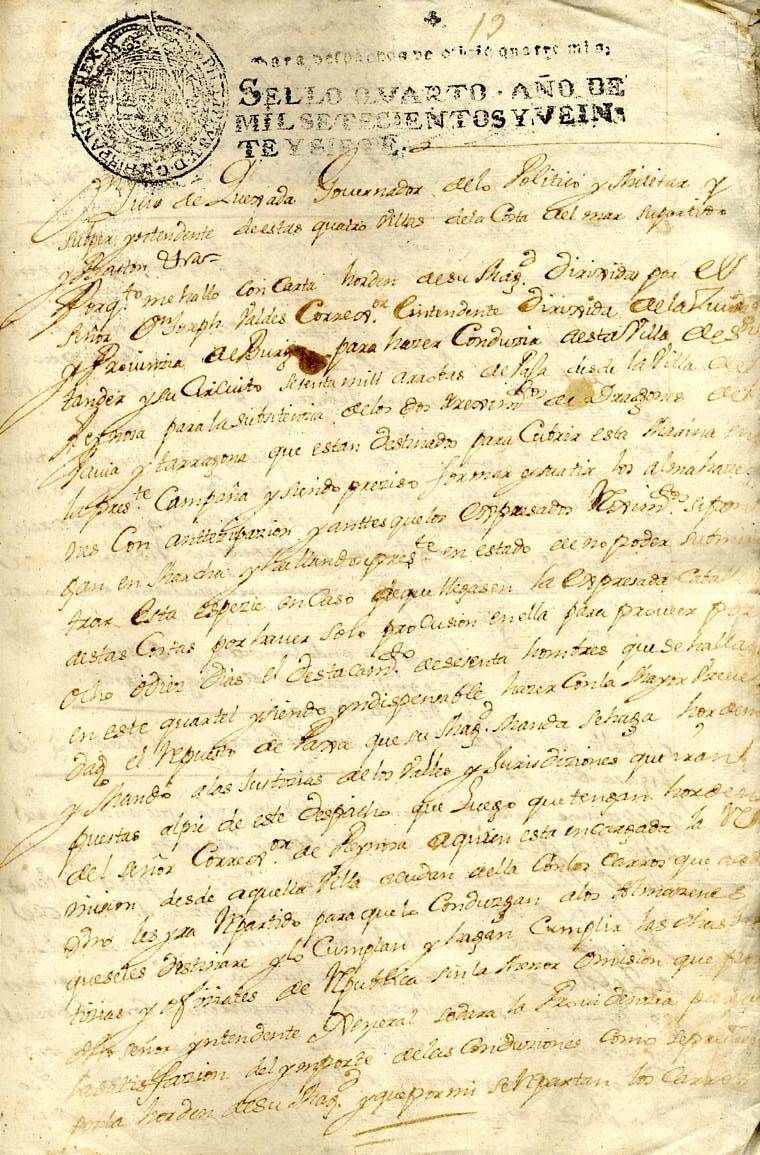 19
para despachos de oficio quatro mrs,
SELLO QVARTO · AÑO DE
MIL SETECIENTOS Y VEIN,
TE Y SIETE.
HISPANIAR·REX
Dn Luis de Quesada Governador de lo Politico y Militar y
Supr yntendente de estas quatro Villas de la Costa del mar su partido
y Baston &ra
Porqto me hallo con Carta horden de su Magd Dirixida por el
Señor Dn Joseph Valdes Correxor e intendente de la
y Provinzia de Burgos para hazer Conduzir a esta Villa de Sn
tander y su Circuito setenta mill arrobas de Paja desde la Villa de
Reynosa para la subsistenzia de los dos Reximtos de Dragones de
Pavia y tarragona que estan destinado para Cubrir esta Marina en
la preste Campaña y siendo preziso formar los almaha
nes Con antteçipazion y anttes que los expresados Reximtos se pon
gan en Marcha y hallandonos preste en estado de no poder submi
trar esta espezie en Caso de que llegasen la expresada Caball
destas Costas por haver solo provision en ella para proveer por
Ocho o diez dias el Destacamto de sesenta hombres que se halla
en este quartel y siendo yndispensable hazer Con la Mayor breve
dad el Reparto de Paxa que su Magd Manda se haga hordeno
y Mando a las Justizias de los Valles y Jurisdiziones que yran
puestas al pie de este Despacho que Luego que tengan horden
del señor Correxor de Reynosa a quien esta encargada la Re
mision desde aquella Villa acudan a ella Con los Carros que a cada
Uno les yra Repartido para que lo Conduzgan a los Almazenes
que se les Destinare y lo Cumplan y hagan Cumplir las dhas Jus
tizias y ofiziales de Republica sin la menor Omision que por
dho señor yntendente General se dara la Providenzia para
la satisfazion del ymporte de las Conduziones Como se previene
por la horden de su Magd y que por mi se Repartan los Carros